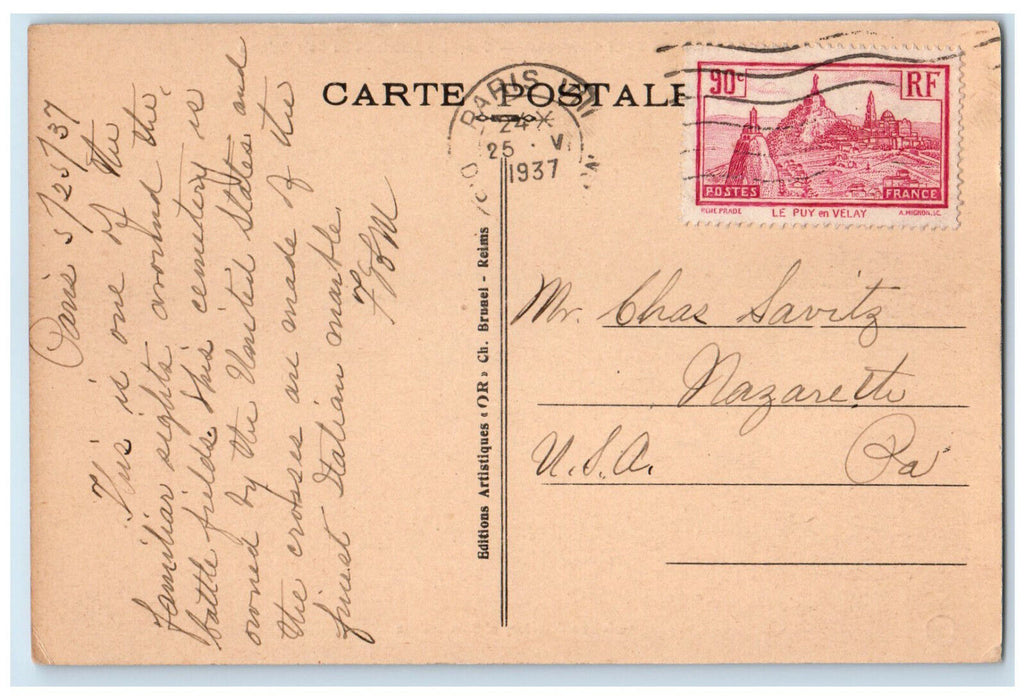 CARTE POSTALE
PARIS VIII
24
25 · V
1937
90c
RF
POSTES
FRANCE
RENE PRADE LE PUY en VELAY A. MIGNON. SC.
Paris 5/25/37
This is one of the
familiar sights around the
battle fields this cemetery is
owned by the United States and
the crosses are made of the
finest Italian marble
Editions Artistiques « OR » Ch. Brunel - Reims
Mr. Chas Savitz
Nazareth
U.S.A. Pa